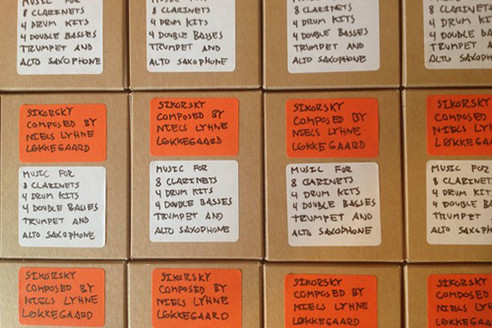 MUSIC FOR
8 CLARINETS
4 DRUM KITS
4 DOUBLE BASSES
TRUMPET AND
ALTO SAXOPHONE
MUSIC FOR
8 CLARINETS
4 DRUM KITS
4 DOUBLE BASSES
TRUMPET AND
ALTO SAXOPHONE
MUSIC FOR
8 CLARINETS
4 DRUM KITS
4 DOUBLE BASSES
TRUMPET AND
ALTO SAXOPHONE
8 CLARINETS
4 DRUM
4 DOUBLE
TRUMPET
ALTO SAXOPHONE
SIKORSKY
COMPOSED BY
NIELS LYHNE
LØKKEGAARD
MUSIC FOR
8 CLARINETS
4 DRUM KITS
4 DOUBLE BASSES
TRUMPET AND
ALTO SAXOPHONE
SIKORSKY
COMPOSED BY
NIELS LYHNE
LØKKEGAARD
MUSIC FOR
8 CLARINETS
4 DRUM KITS
4 DOUBLE BASSES
TRUMPET AND
ALTO SAXOPHONE
SIKORSKY
COMPOSED BY
NIELS LYHNE
LØKKEGAARD
MUSIC FOR
8 CLARINETS
4 DRUM KITS
4 DOUBLE BASSES
TRUMPET AND
ALTO SAXOPHONE
SIKORSKY
COMPOSED
NIELS
MUSIC FOR
8
4 DRUM
4 DOUBLE
TRUMPET
ALTO
SIKORSKY
COMPOSED BY
NIELS LYHNE
LØKKEGAARD
SIKORSKY
COMPOSED BY
NIELS LYHNE
LØKKEGAARD
SIKORSKY
COMPOSED BY
NIELS LYHNE
LØKKEGAARD
SIKORSKY
COMPOSED
NIELS